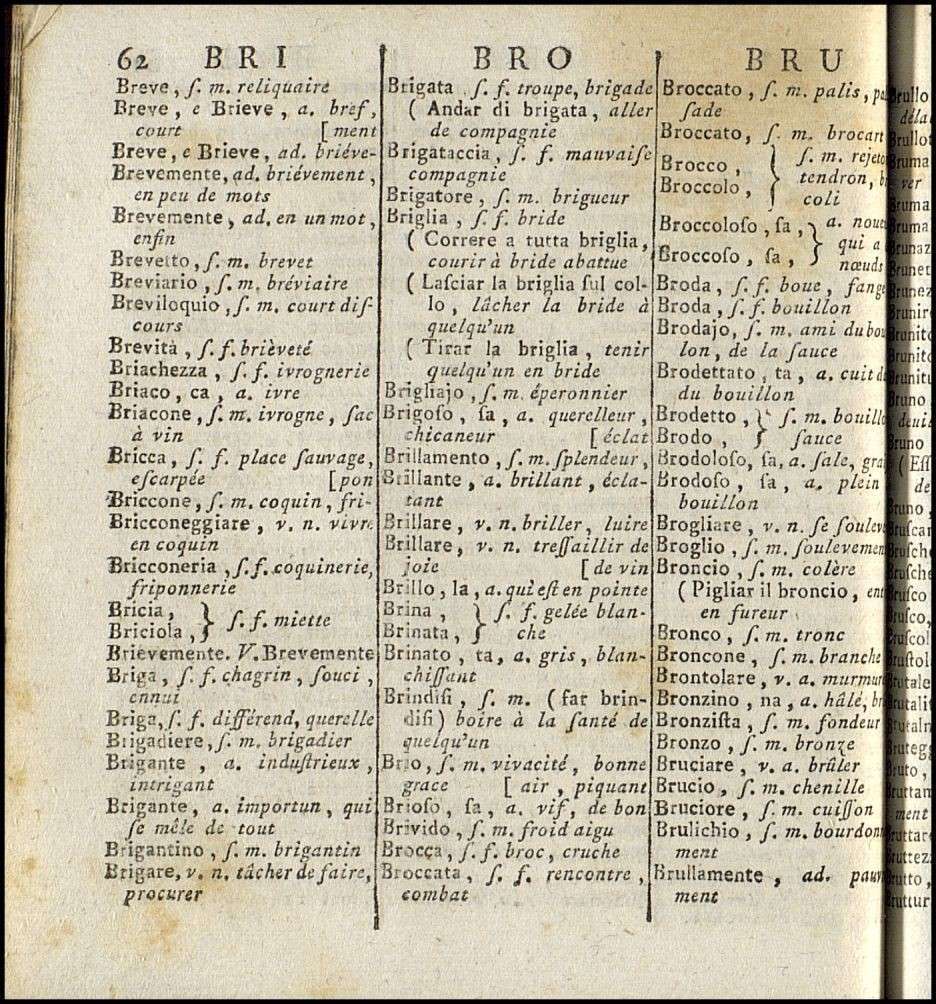 62 BRI
Breve, ſ. m. reliquaire
Breve, e Brieve, a. bref,
court [ment
Breve, e Brieve, ad. briéve-
Brevemente, ad. briévement,
en peu de mots
Brevemente, ad. en un mot,
enfin
Brevetto, ſ. m. brevet
Breviario, ſ. m. bréviaire
Breviloquio, ſ. m. court diſ-
cours
Brevità, ſ. f. brièveté
Briachezza, ſ. f. ivrognerie
Briaco, ca, a. ivre
Briacone, ſ. m. ivrogne, ſac
à vin
Bricca, ſ. f. place ſauvage,
eſcarpée [pon
Briccone, ſ. m. coquin, fri-
Bricconeggiare, v. n. vivre
en coquin
Bricconeria, ſ. f. coquinerie,
friponnerie
Bricia, } ſ. f. miette
Briciola, }
Brievemente. V. Brevemente
Briga, ſ. f. chagrin, ſouci,
ennui
Briga, ſ. f. différend, querelle
Brigadiere, ſ. m. brigadier
Brigante, a. induſtrieux,
intrigant
Brigante, a. importun, qui
ſe mêle de tout
Brigantino, ſ. m. brigantin
Brigare, v. n. tâcher de faire,
procurer
BRO
Brigata ſ. f. troupe, brigade
( Andar di brigata, aller
de compagnie
Brigataccia, ſ. f. mauvaiſe
compagnie
Brigatore, ſ. m. brigueur
Briglia, ſ. f. bride
( Correre a tutta briglia,
courir à bride abattue
( Laſciar la briglia ſul col-
lo, lâcher la bride à
quelqu'un
( Tirar la briglia, tenir
quelqu'un en bride
Brigliajo, ſ. m. éperonnier
Brigoſo, ſa, a. querelleur,
chicaneur [éclat
Brillamento, ſ. m. ſplendeur,
Brillante, a. brillant, écla-
tant
Brillare, v. n. briller, luire
Brillare, v. n. treſſaillir de
joie [de vin
Brillo, la, a. qui eſt en pointe
Brina, } ſ. f. gelée blan-
Brinata, } che
Brinato, ta, a. gris, blan-
chiſſant
Brindiſi, ſ. m. (far brin-
diſi) boire à la ſanté de
quelqu'un
Brio, ſ. m. vivacité, bonne
grace [air, piquant
Brioſo, ſa, a. vif, de bon
Brivido, ſ. m. froid aigu
Brocca, ſ. f. broc, cruche
Broccata, ſ. f. rencontre,
combat
BRU
Broccato, ſ. m. palis, pa
ſade
Broccato, ſ. m. brocart
Brocco, } ſ. m. rejeto
Broccolo, } tendron, b
coli
Broccoloſo, ſa, } a. noue
Broccoſo, ſa, } qui a
nœuds
Broda, ſ. f. boue, fange
Broda, ſ. f. bouillon
Brodajo, ſ. m. ami du bou
lon, de la ſauce
Brodettato, ta, a. cuit d
du bouillon
Brodetto, } ſ. m. bouillo
Brodo, } ſauce
Brodoloſo, ſa, a. ſale, gra
Brodoſo, ſa, a. plein
bouillon
Brogliare, v. n. ſe ſouleve
Broglio, ſ. m. ſoulevemen
Broncio, ſ. m. colère
( Pigliar il broncio, ent
en fureur
Bronco, ſ. m. tronc
Broncone, ſ. m. branche
Brontolare, v. a. murmure
Bronzino, na, a. hâlé, br
Bronziſta, ſ. m. fondeur
Bronzo, ſ. m. bronze
Bruciare, v. a. brûler
Brucio, ſ. m. chenille
Bruciore, ſ. m. cuiſſon
Brulichio, ſ. m. bourdonn
ment
Brullamente, ad. pauvr
ment